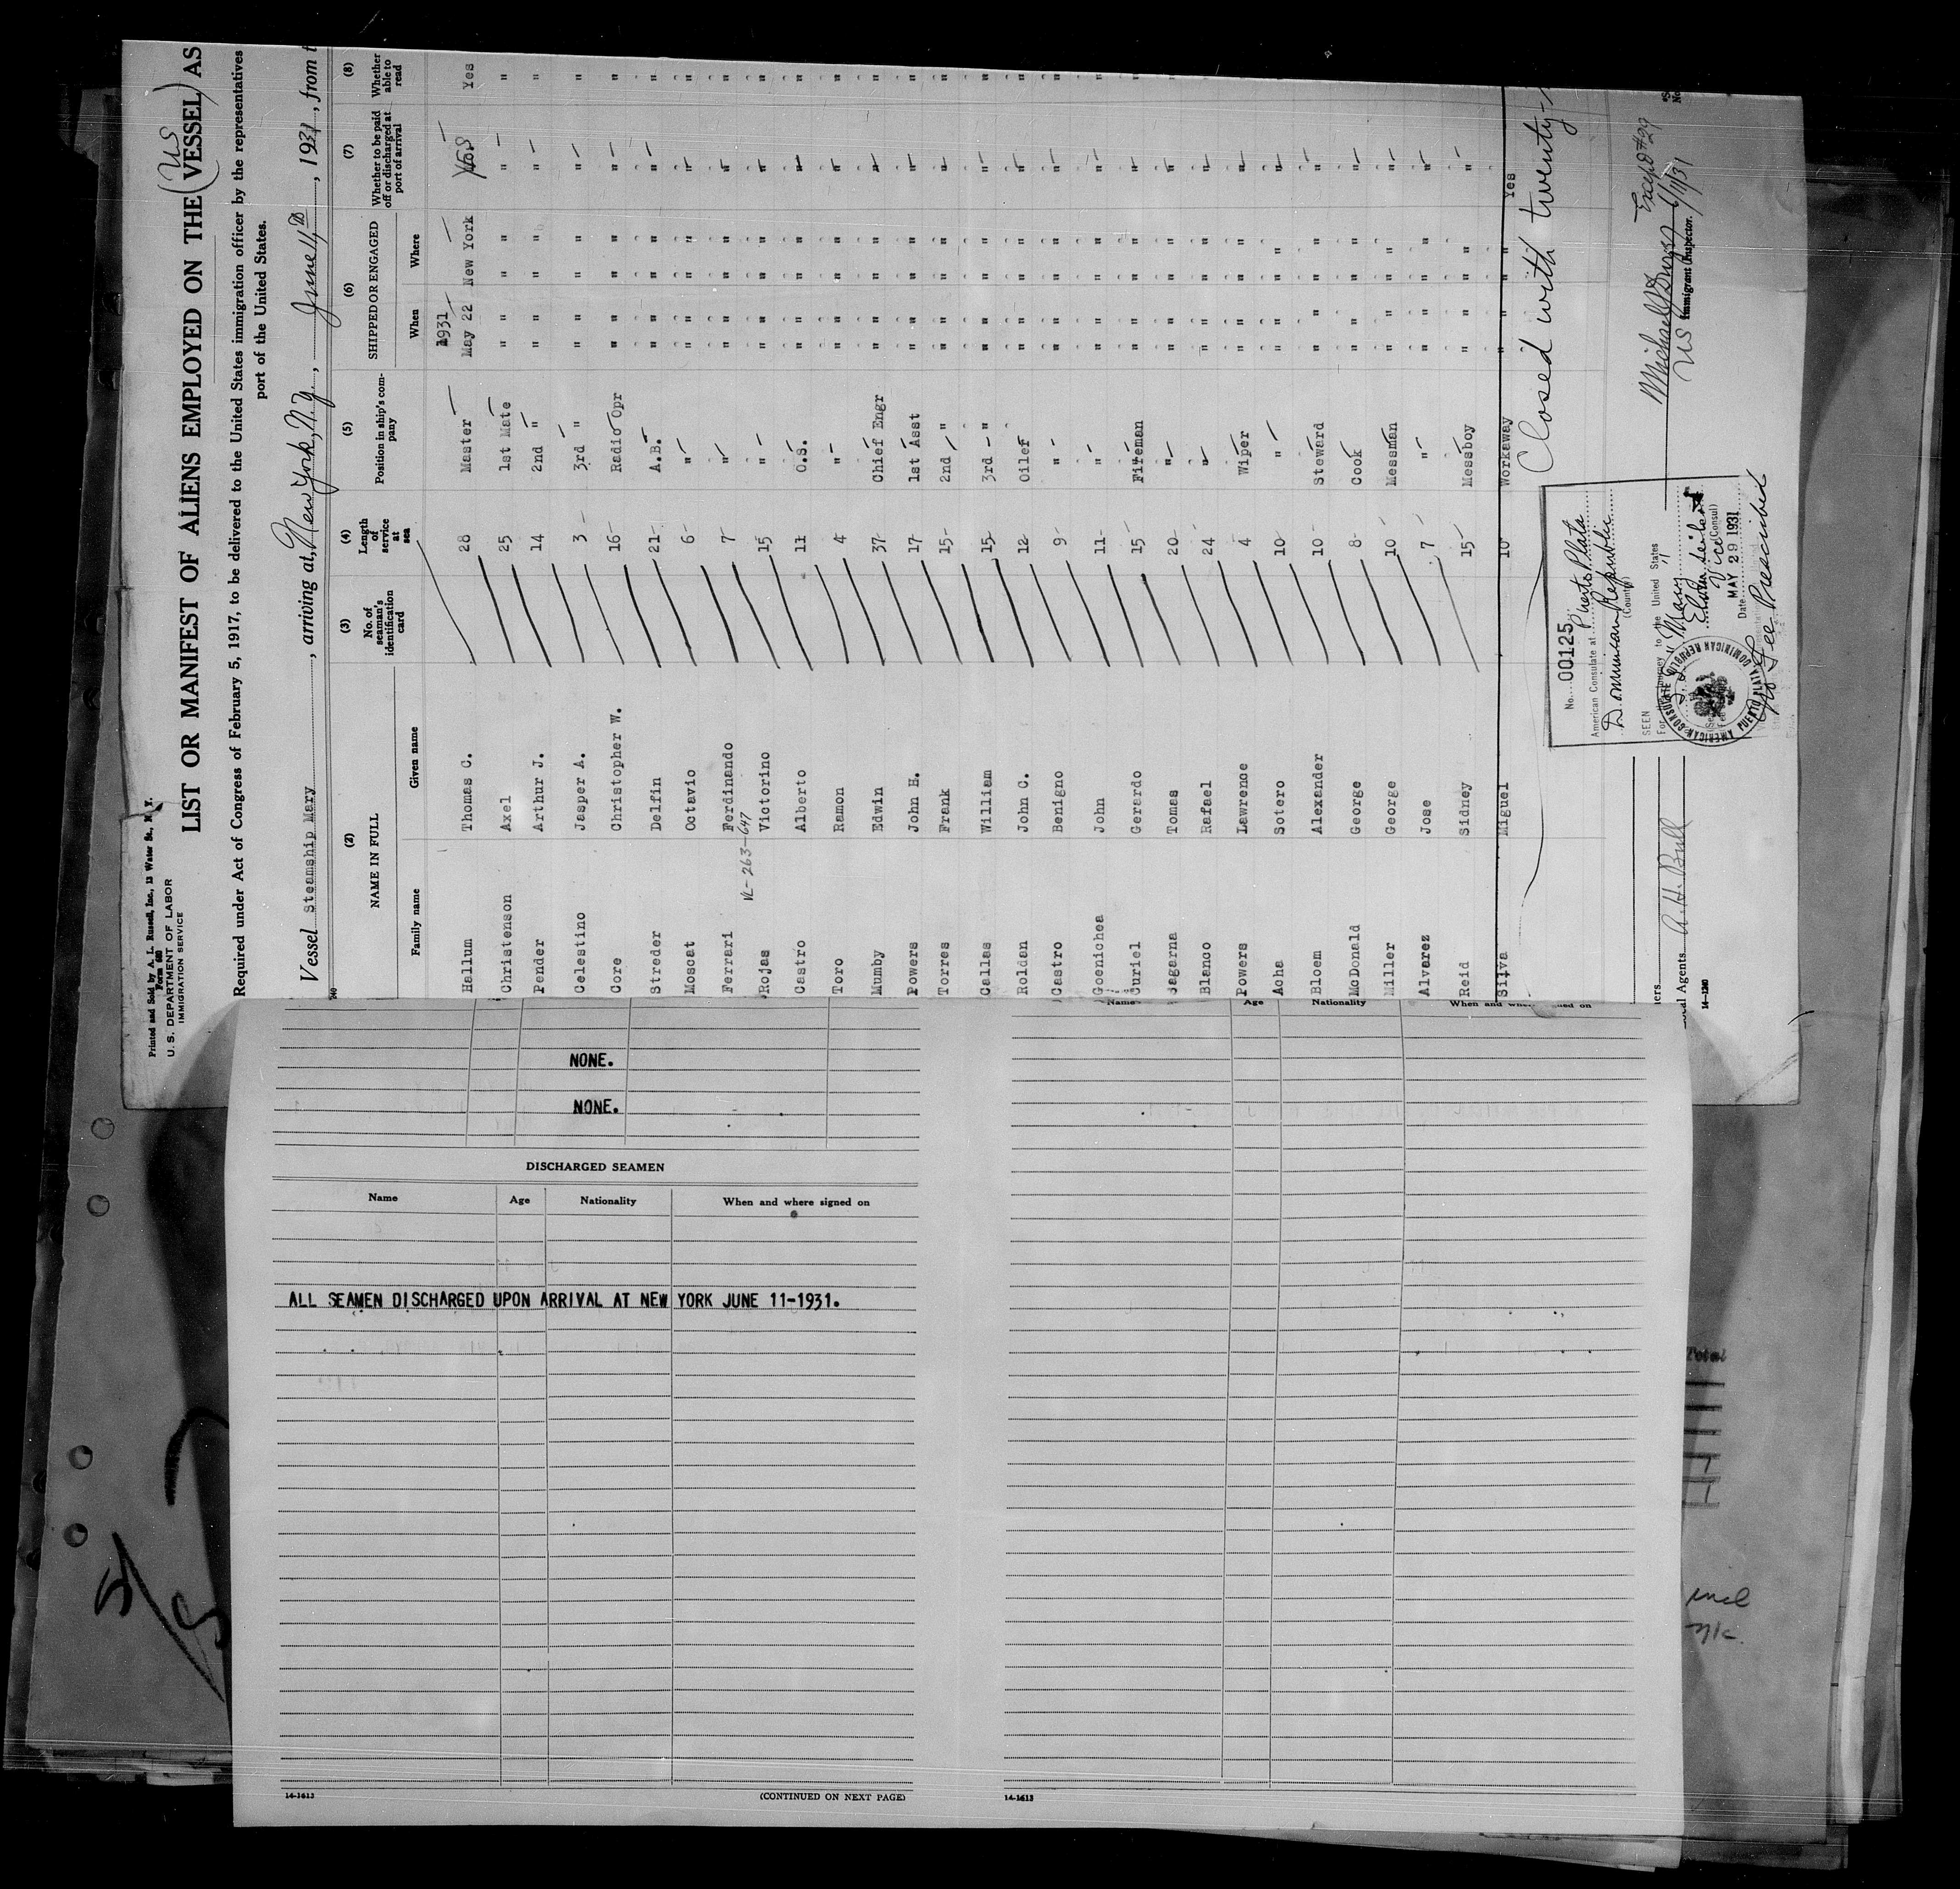 Printed and Sold by A. L. Russell, Inc., 13 Water St., N. Y.
Form 680
U. S. DEPARTMENT OF LABOR
IMMIGRATION SERVICE
LIST OR MANIFEST OF ALIENS EMPLOYED ON THE (US VESSEL) AS
Required under Act of Congress of February 5, 1917, to be delivered to the United States immigration officer by the representatives
port of the United States.
Vessel Steamship Mary, arriving at New York, N.Y., June 11th, 1931, from t
(2) NAME IN FULL (3) No. of seaman's identification card (4) Length of service at sea (5) Position in ship's company (6) SHIPPED OR ENGAGED (7) Whether to be paid off or discharged at port of arrival (8) Whether able to read
Family name Given name When Where
1931
Hallum Thomas C. 28 Master May 22 New York Yes Yes
Christenson Axel 25 1st Mate " " " " " "
Pender Arthur J. 14 2nd " " " " " " "
Celestino Jasper A. 3 3rd " " " " " " "
Core Christopher W. 16 Radio Opr " " " " " "
Streder Delfin 21 A.B. " " " " " "
Moscat Octavio 6 " " " " " " "
Ferrari Ferdinando 7 " " " " " " "
VL-263-647
Rojas Victorino 15 " " " " " " "
Castro Alberto 11 O.S. " " " " " "
Toro Ramon 4 " " " " " " "
Mumby Edwin 37 Chief Engr " " " " " "
Powers John H. 17 1st Asst " " " " " "
Torres Frank 15 2nd " " " " " " "
Callas William 15 3rd " " " " " " "
Roldan John C. 12 Oiler " " " " " "
Castro Benigno 9 " " " " " " "
Goenichea John 11 " " " " " " "
Curiel Gerardo 15 Fireman " " " " " "
Sagarna Tomas 20 " " " " " " "
Blanco Rafael 24 " " " " " " "
Powers Lawrence 4 Wiper " " " " " "
Acha Sotero 10 " " " " " " "
Bloem Alexander 10 Steward " " " " " "
McDonald George 8 Cook " " " " " "
Miller George 10 Messman " " " " " "
Alvarez Jose 7 " " " " " " "
Reid Sidney 15 Messboy " " " " " "
Silva Miguel 10 Workaway " " " " Yes
Closed with twenty-
No. 00125
American Consulate at Puerto Plata
Dominican Republic
(Country)
SEEN
For the journey to the United States
S.S. "Mary"
Vice Consul
Date MAY 29 1931
No Fee Prescribed
AMERICAN CONSULATE
PUERTO PLATA DOMINICAN REPUBLIC
Except #29
6/11/31
US Immigrant Inspector.
ers
cal Agents A. H. Bull
14-1240
NONE.
NONE.
DISCHARGED SEAMEN
Name Age Nationality When and where signed on
ALL SEAMEN DISCHARGED UPON ARRIVAL AT NEW YORK JUNE 11-1931.
14-1613 (CONTINUED ON NEXT PAGE)
Name Age Nationality When and where signed on
14-1613
Total
incl